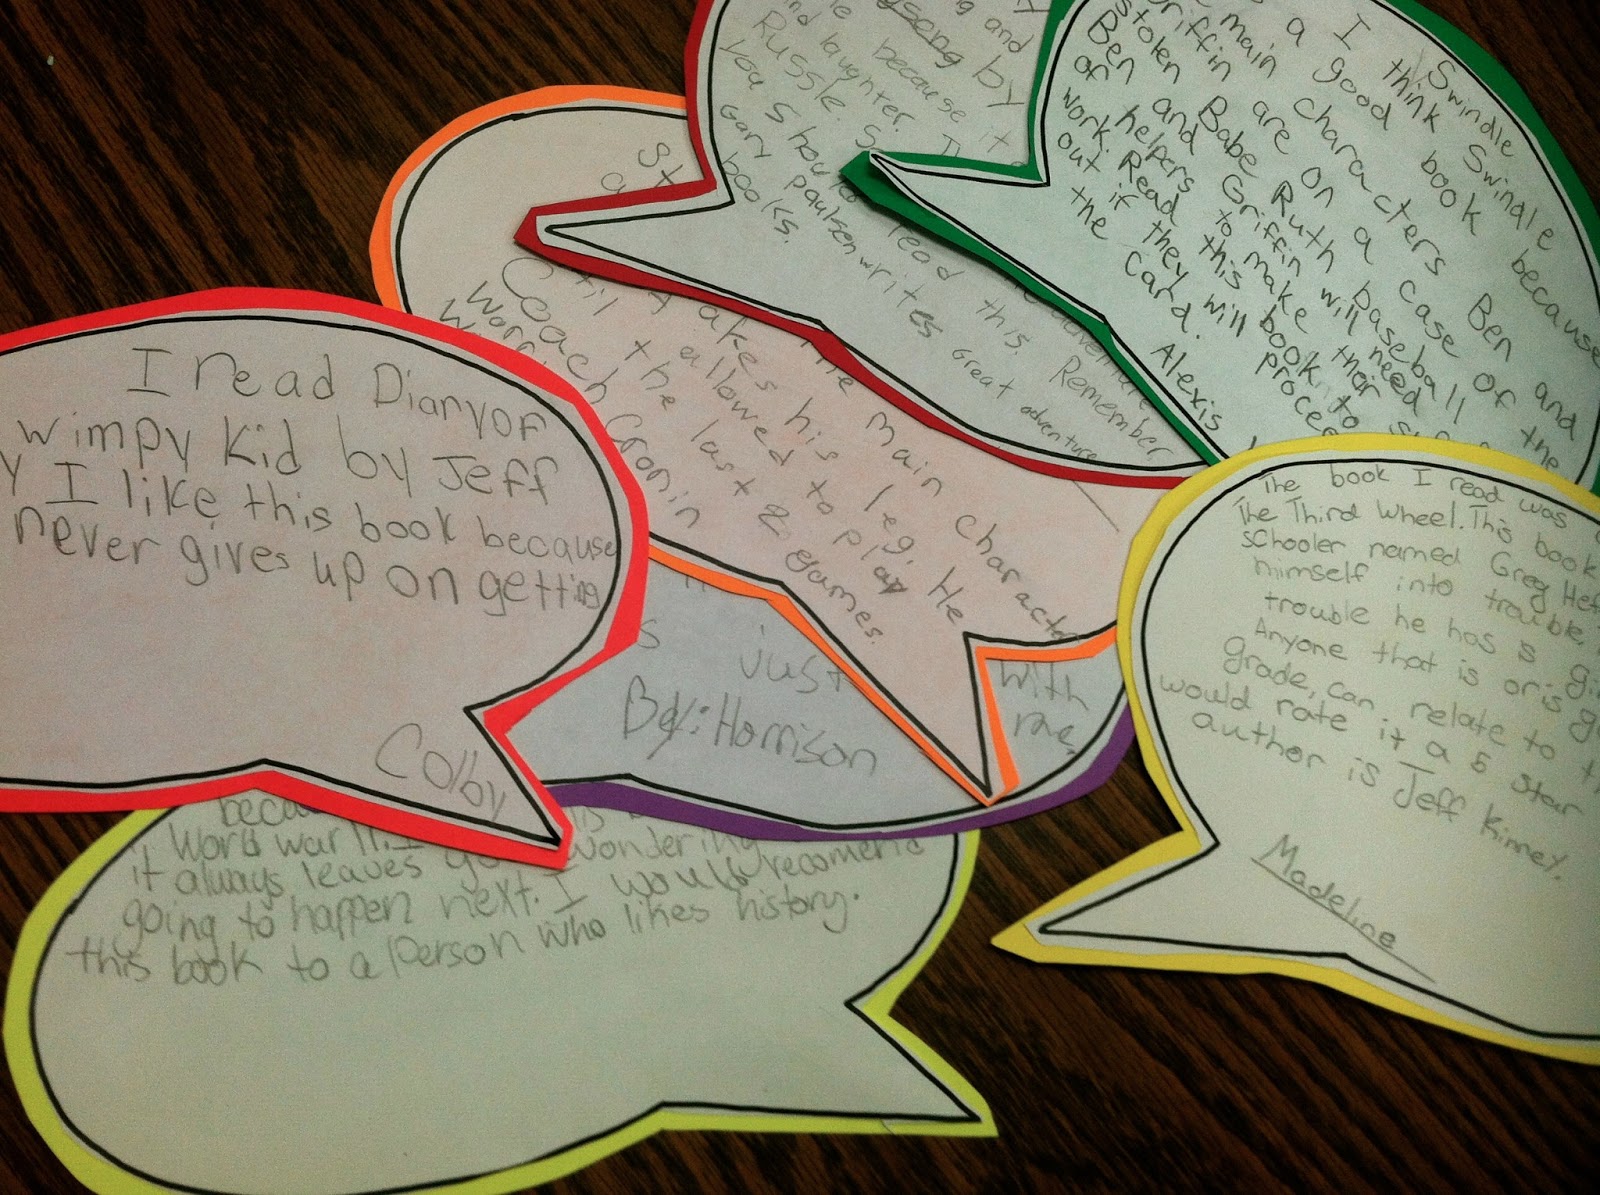 I read Diary of
wimpy Kid by Jeff
y I like this book because
never gives up on getting
Colby
Coach
Cronin
takes the main character
his leg. He
til allowed to play
the last 2 games.
by
and
because it
Russle.
nd laughter.
you should read this. Remember
Gary paulsen writes Great adventure
books.
Swindle
I think Swindle
a good book because
main characters Ben and
Griffin are on a case of the
stolen Babe Ruth baseball
Ben and Griffin will need
of helpers to make their
work. Read this book to
out if they will proce
the card.
Alexis
The book I read was
The Third Wheel. This book
schooler named Greg Hef
himself into trouble,
trouble he has s gi
Anyone that is or is g
grade, can relate to th
would rate it a 5 star
author is Jeff Kinney.
Madeline
s just with
By: Harrison
rae
beca
World war II. I
it always leaves wondering
going to happen next. I would recomend
this book to a person who likes history.